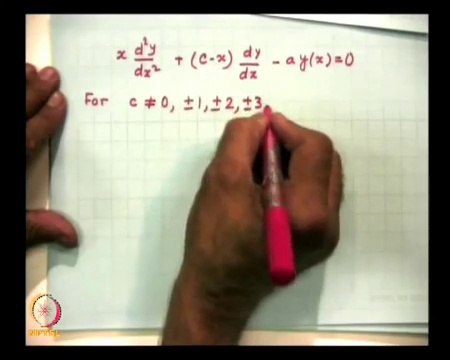 x d²y/dx² + (c-x) dy/dx - a y(x) = 0
For c ≠ 0, ±1, ±2, ±3